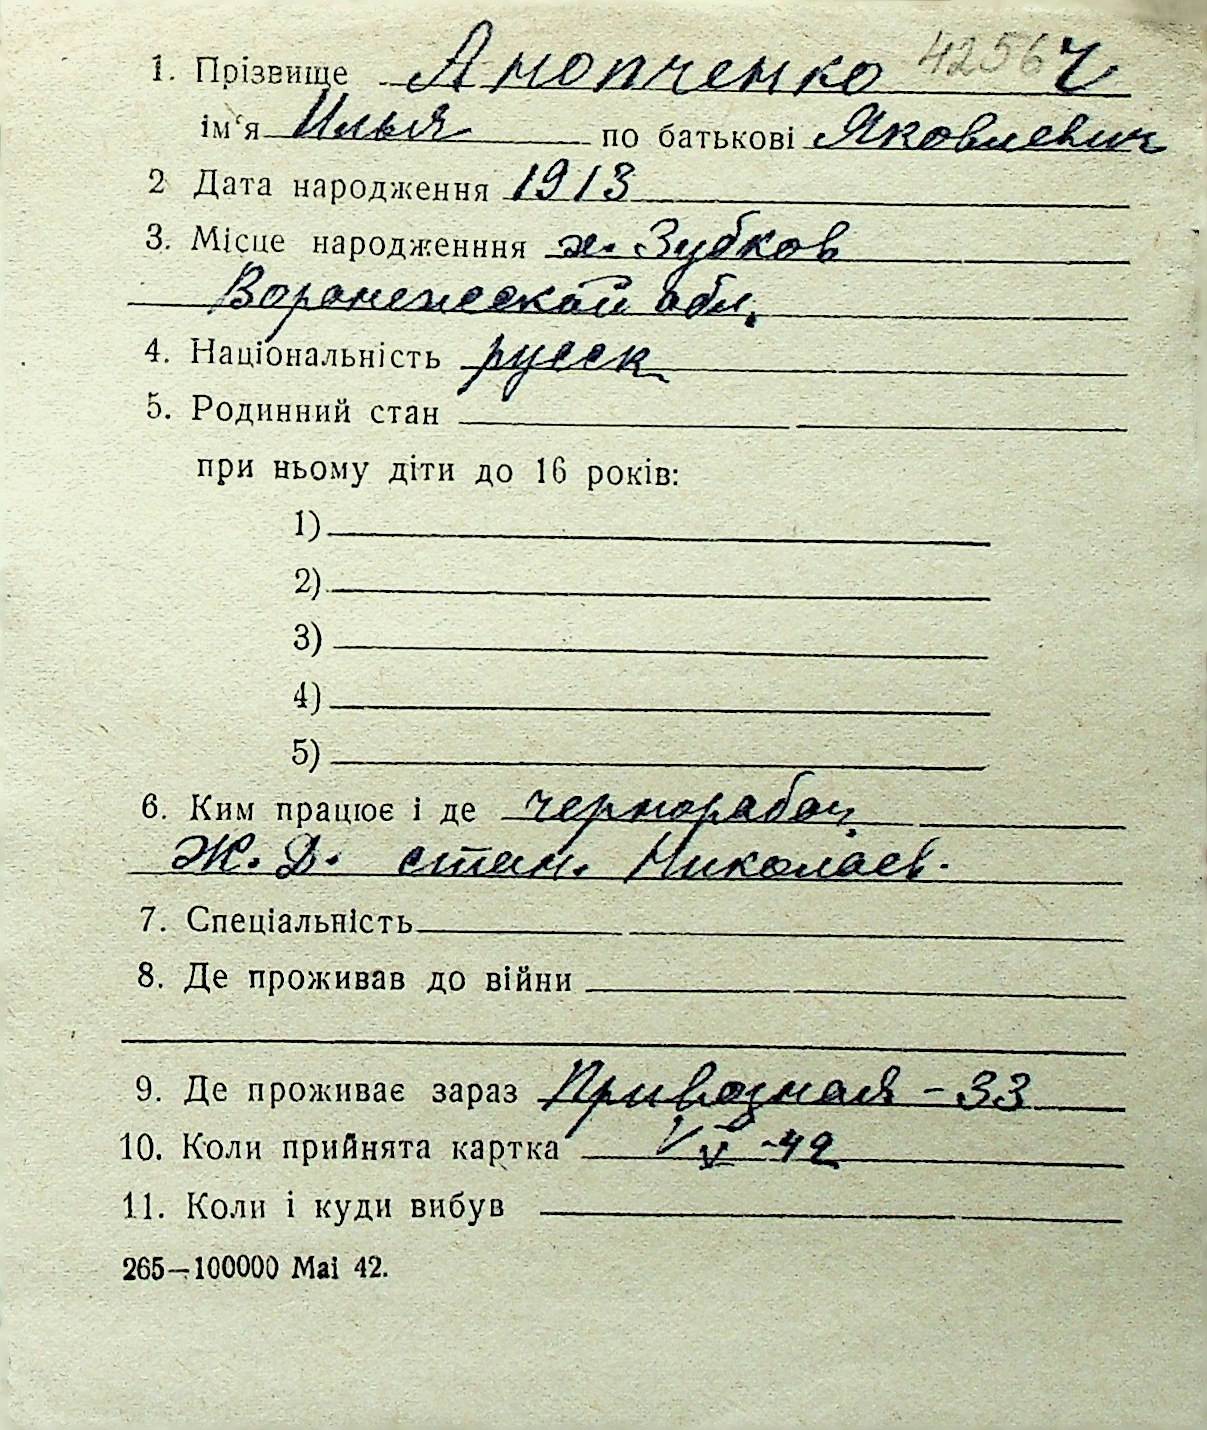 1. Прізвище Анопченко 4256 Ч
ім‘я Илья по батькові Яковлевич
2 Дата народження 1913
3. Місце народженння х. Зубков
Воронежской обл.
4. Національність русск
5. Родинний стан
при ньому діти до 16 років:
1)
2)
3)
4)
5)
6. Ким працює і де чернорабоч.
Ж. Д. стан. Николаев.
7. Спеціальність
8. Де проживав до війни
9. Де проживає зараз Привозная - 33
10. Коли прийнята картка V -42
11. Коли і куди вибув
265—100000 Mai 42.